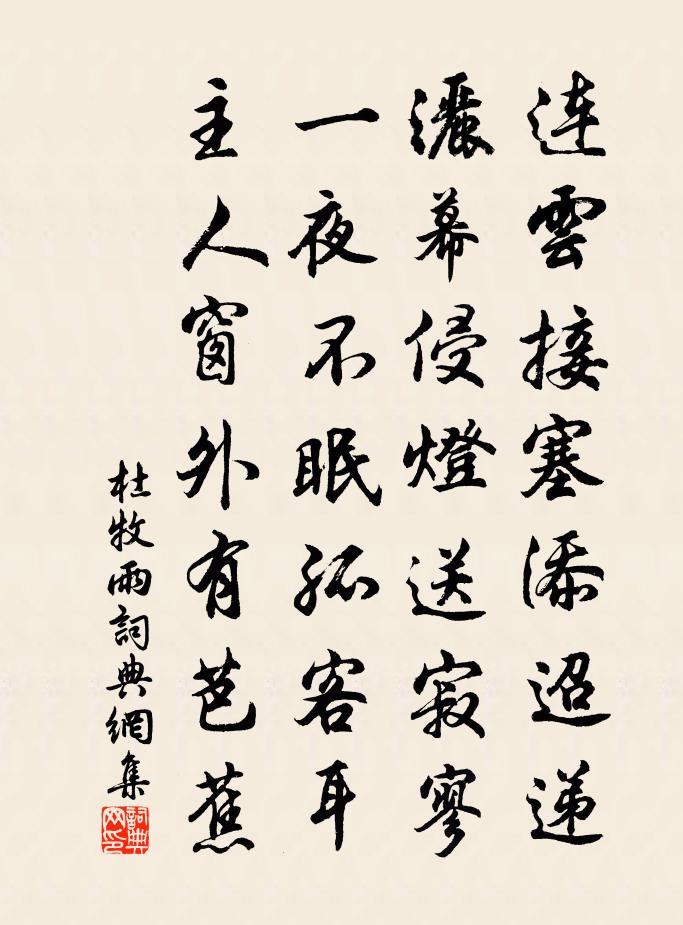 連雲接塞添迢遞
灑幕侵燈送寂寥
一夜不眠孤客耳
主人窗外有芭蕉
杜牧雨詞典網集
詞典网印